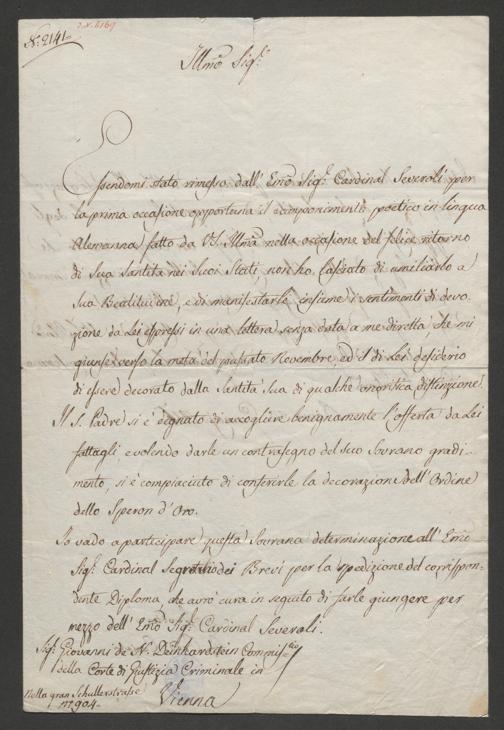 N.° 2141.
Illmo Sig.r
Essendomi stato rimesso dall' Emo Sig.r Cardinal Severoli per
la prima occasione opportuna il componimento poetico in lingua
Alemanna fatto da V.S. Illma nella occasione del felice ritorno
di Sua Santità nei Suoi Stati, non ho lasciato di umiliarlo a
Sua Beatitudine, e di manifestarle insieme i sentimenti di devo-
zione da Lei espressi in una lettera senza data a me diretta, che mi
giunse verso la metà del passato Novembre, ed il di Lei desiderio
di essere decorato dalla Santità Sua di qualche onorifica distinzione.
Il S. Padre si è degnato di accogliere benignamente l'offerta da Lei
fattagli, e volendo darle un contrasegno del suo Sovrano gradi-
mento, si è compiaciuto di conferirle la decorazione dell'Ordine
dello Speron d'Oro.
Io vado a partecipare questa Sovrana determinazione all' Emo
Sig.r Cardinal Segretario dei Brevi per la spedizione del corrispon-
dente Diploma che avrò cura in seguito di farle giungere per
mezzo dell' Emo Sig.r Cardinal Severoli.
Sig.r Giovanni de N. Deinhardstein Commiss.rio
della Corte di Giustizia Criminale in
Nella gran Schullerstrasse
n.° 904.
Vienna